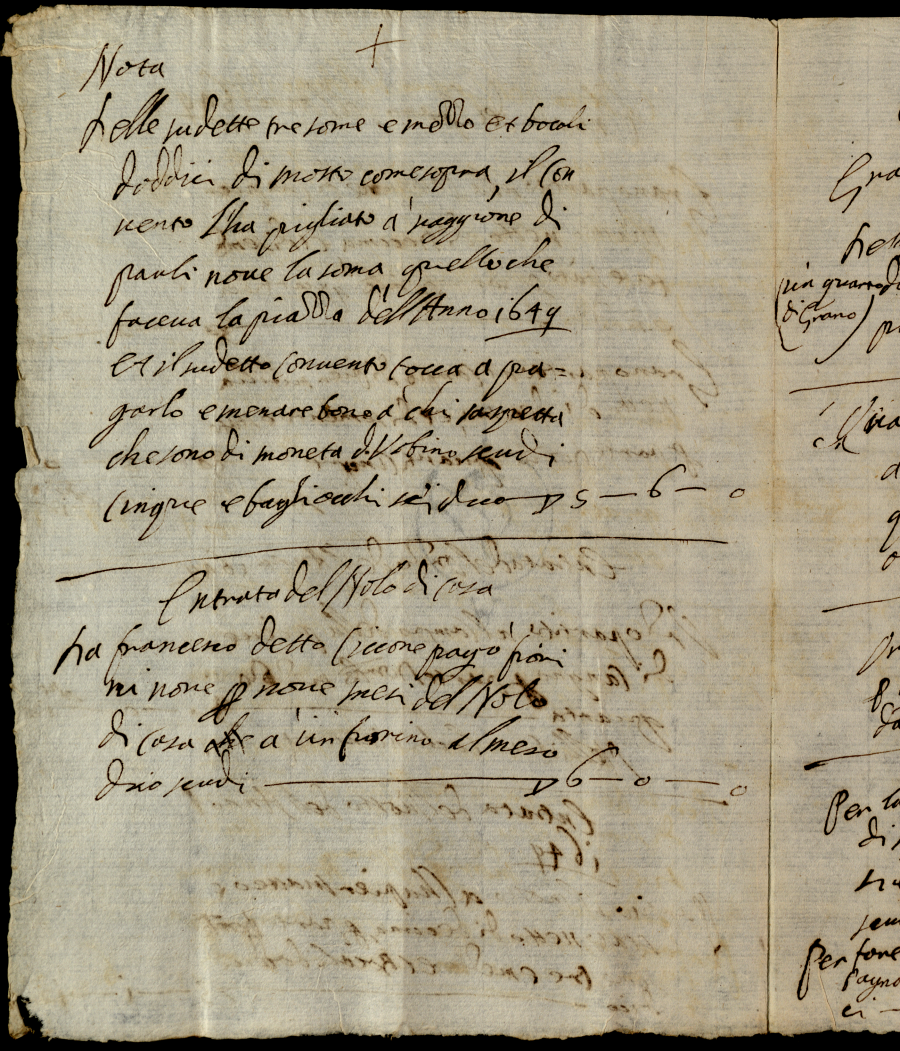 +
Nota
delle sudette tre some e mezzo et bocali
doddici di mosto come sopra, il con
vento l'ha pigliato a' raggione di
pauli nove la soma quello che
faceva la piazza dell'Anno 1649
et il sudetto convento tocca a pa=
garlo e menare bono a' chi saspetta
che sono di moneta d'Urbino scudi
cinque e bagliochi sei dico ▽ 5 — 6 — 0
Entrata del Nolo di casa
Da francesco detto Ciccone pagò fiori
ni nove p nove mesi del Nolo
di casa a' un fiorino al mese
dico scudi ▽ 6 — 0 — 0
Gra
Del
un quarto di
di Grano)
p
Una
a
q
o
Per la
di
scu
Per fare
pagna
ci —